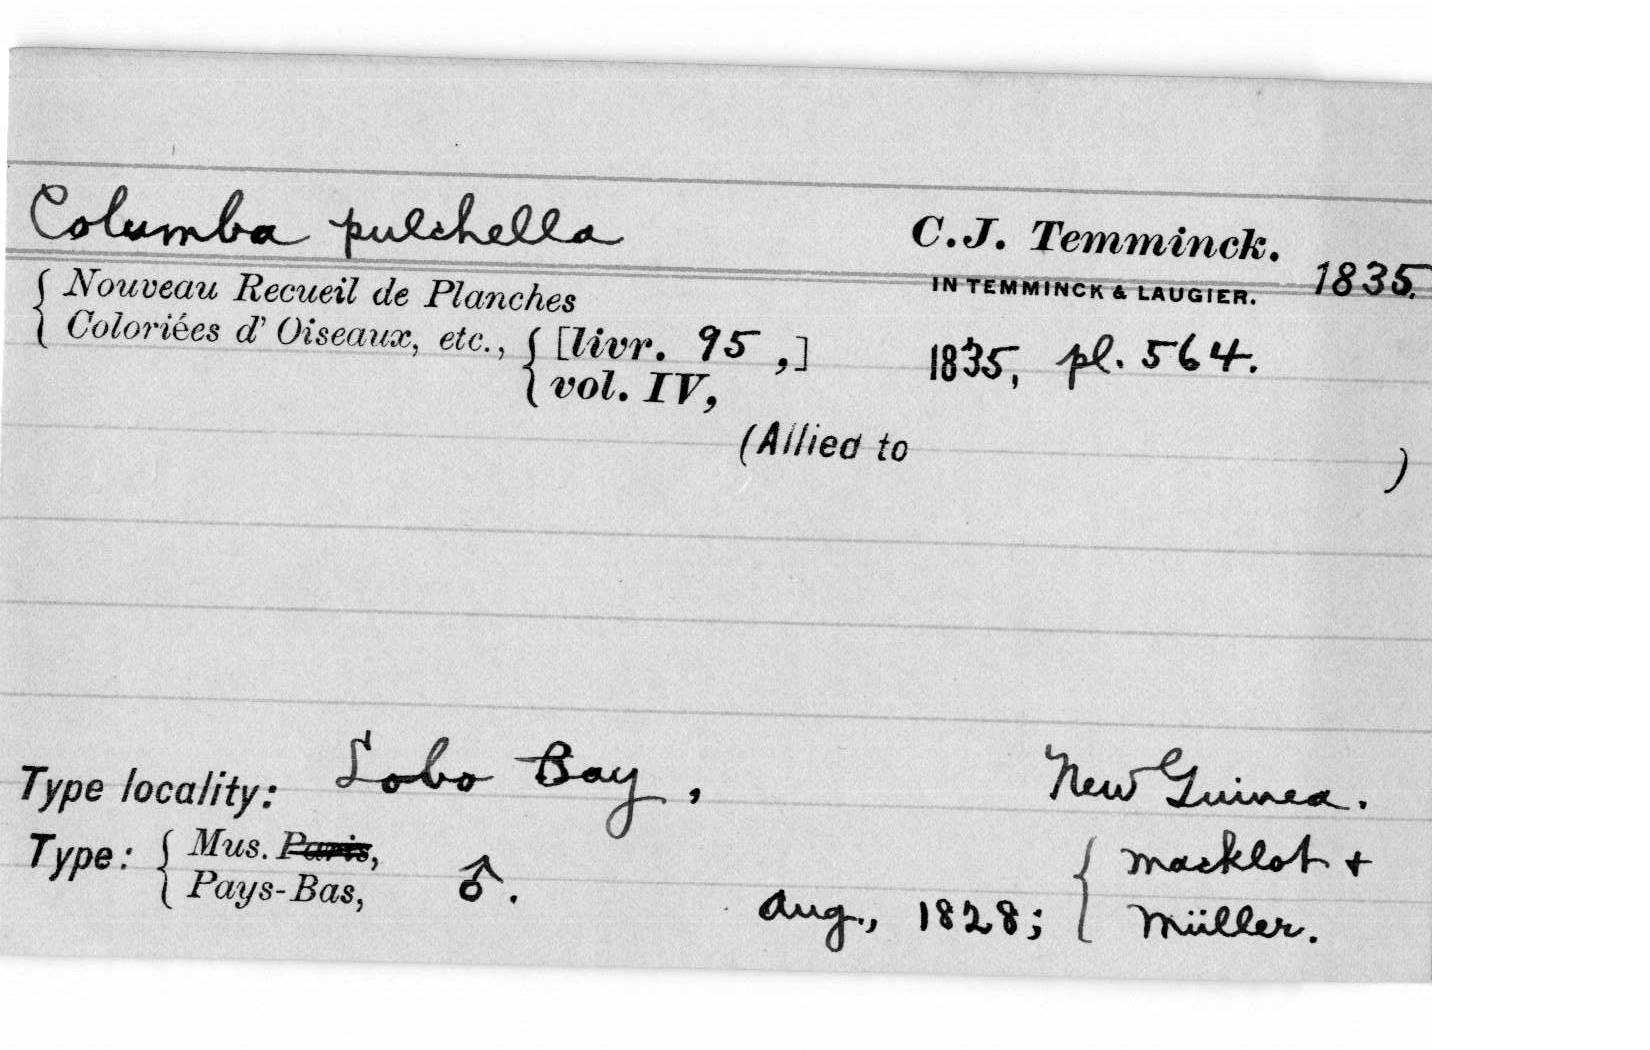 Columba pulchella C.J. Temminck.
IN TEMMINCK & LAUGIER. 1835.
Nouveau Recueil de Planches
Coloriées d' Oiseaux, etc., [livr. 95 ,] 1835, pl. 564.
vol. IV,
(Allied to )
Type locality: Lobo Bay, New Guinea.
Type: Mus. Paris, Macklot +
Pays-Bas, ♂. Aug., 1828; Müller.